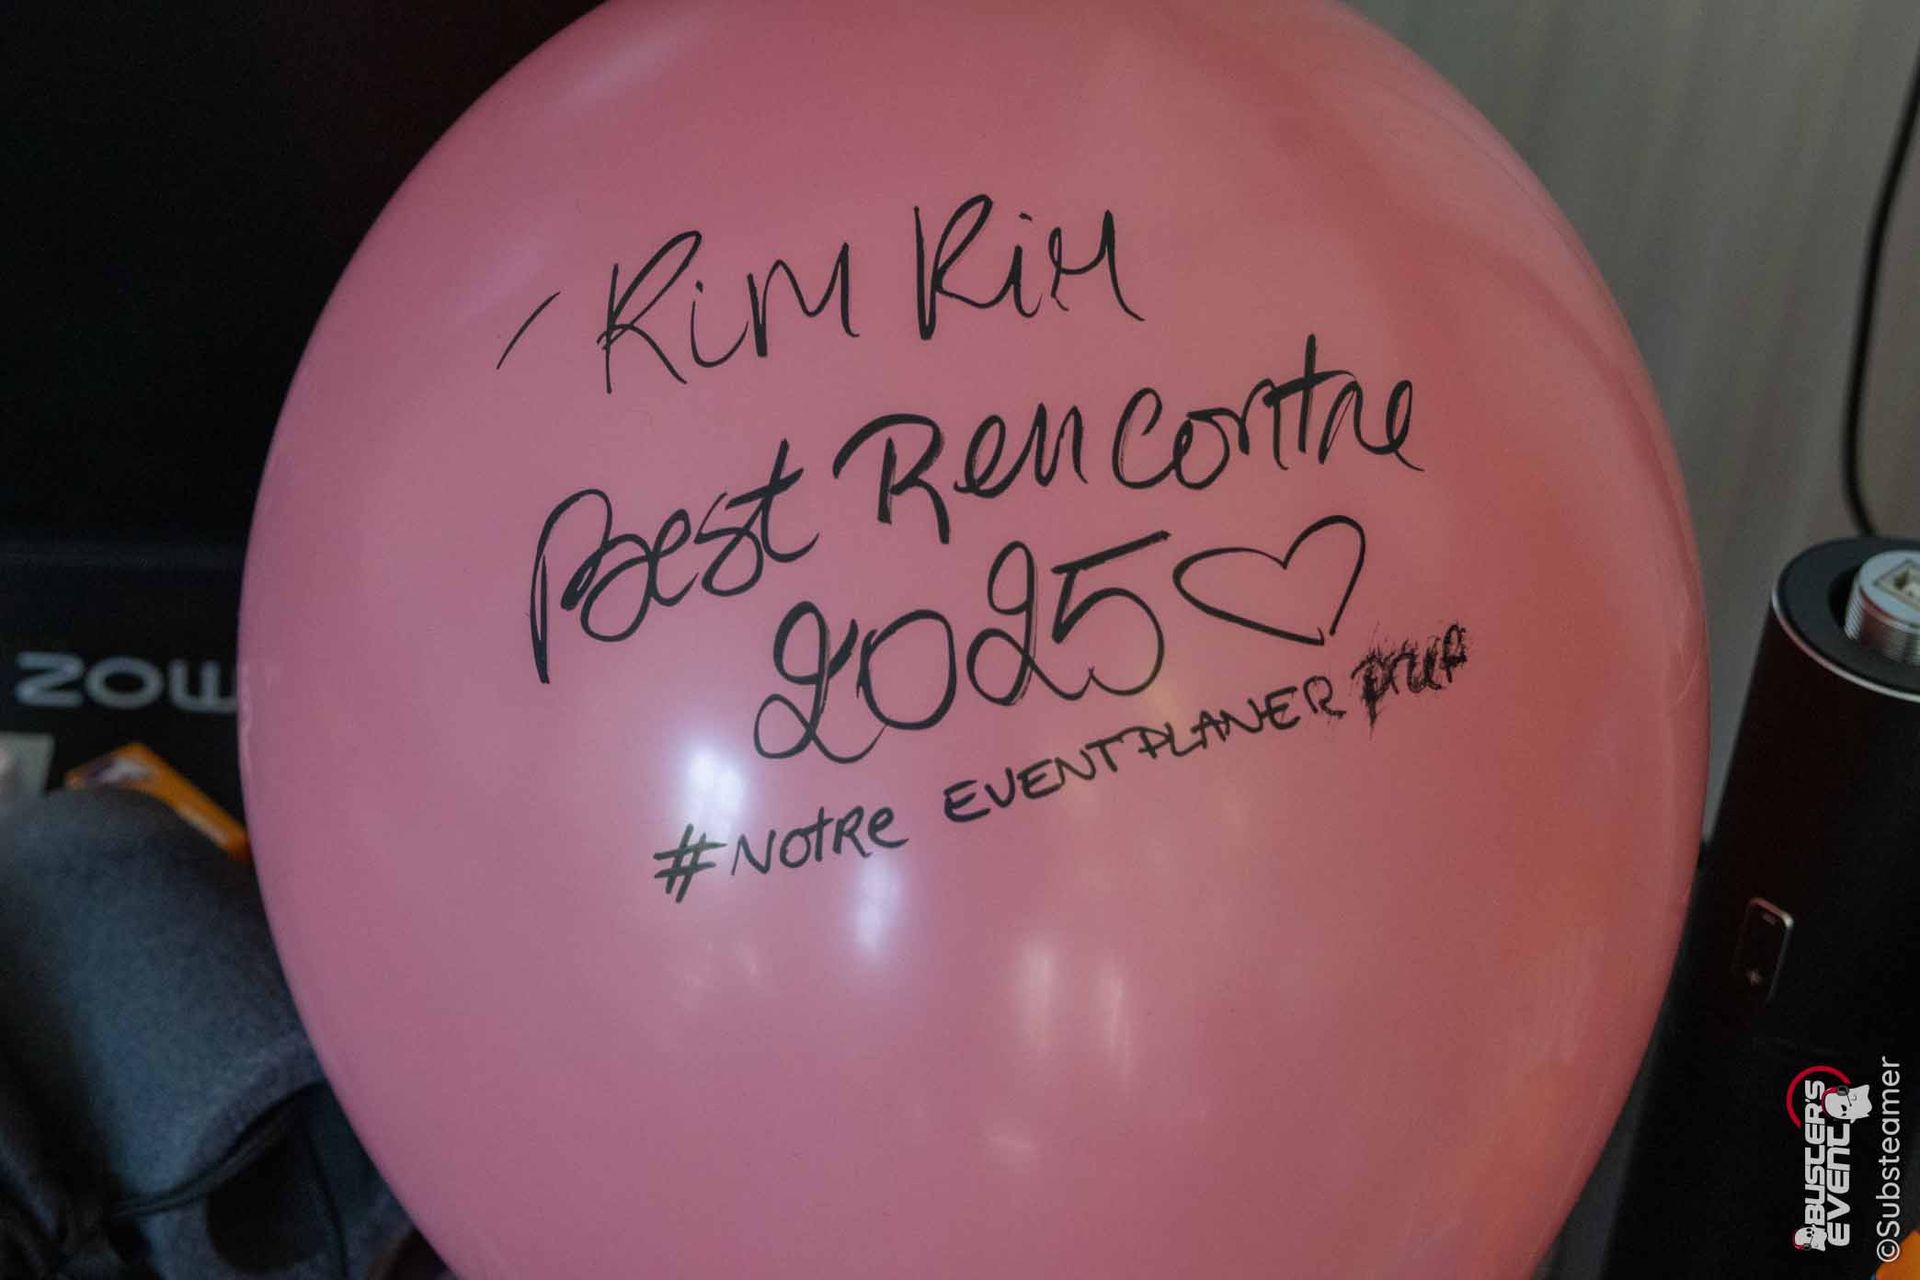 - Kim Kim
Best Rencontre
2025 ♡
#NOTRE EVENTPLANER
ZOW
BUSTER'S
EVENT
©Substeamer